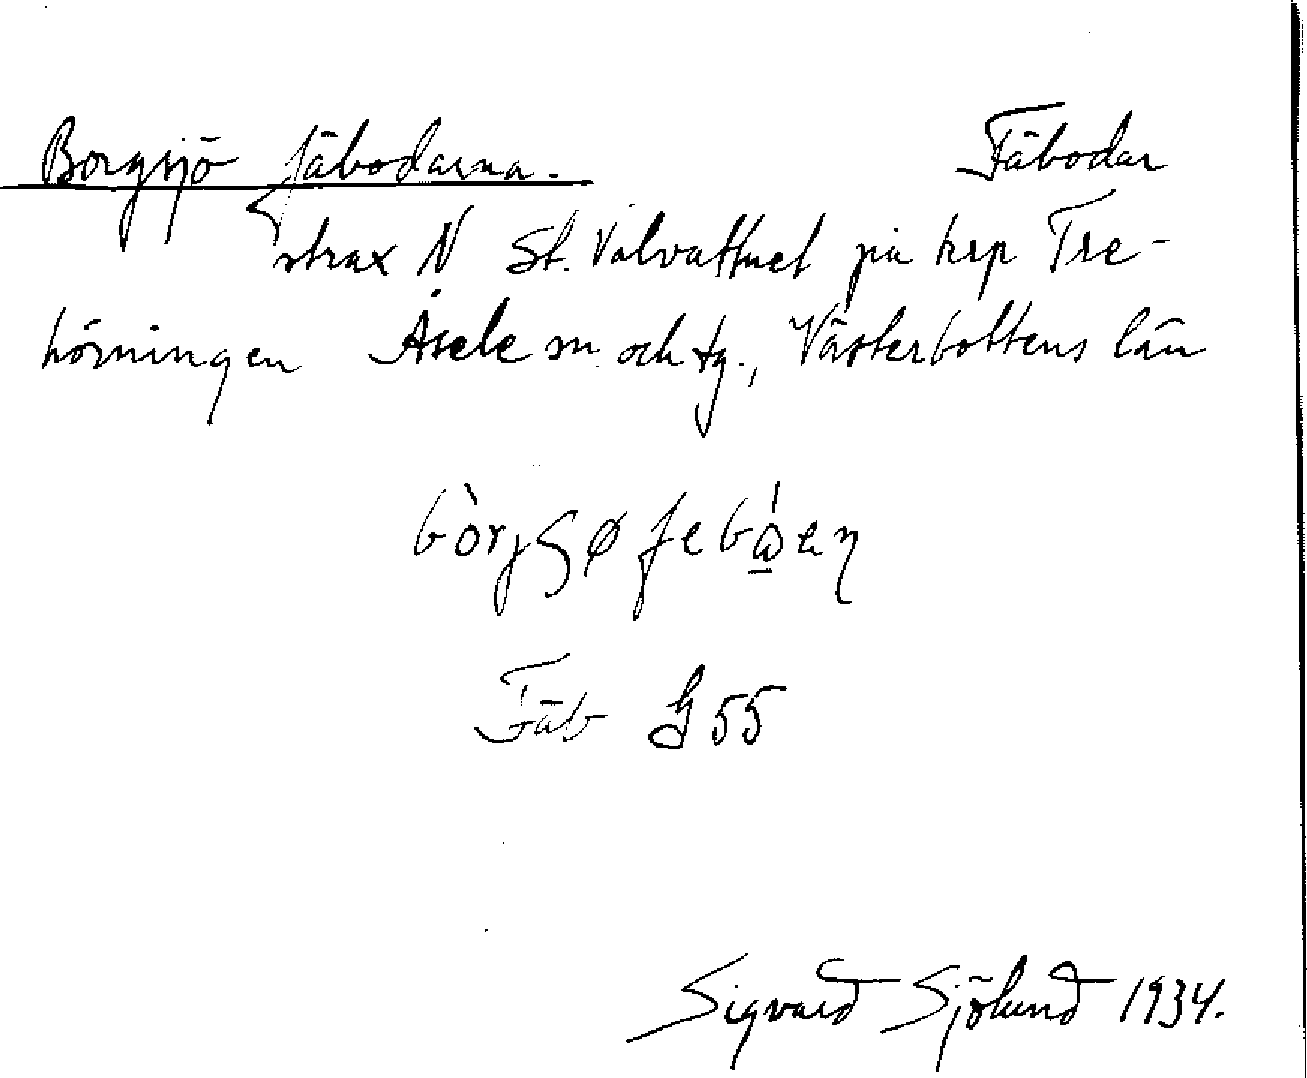 Borgsjö fäbodarna. Fäbodar
strax N St. Valvattnet på krp Tre-
hörningen Åsele sn. och tg., Västerbottens län
Fäb G 55
Sigvard Sjölund 1934.